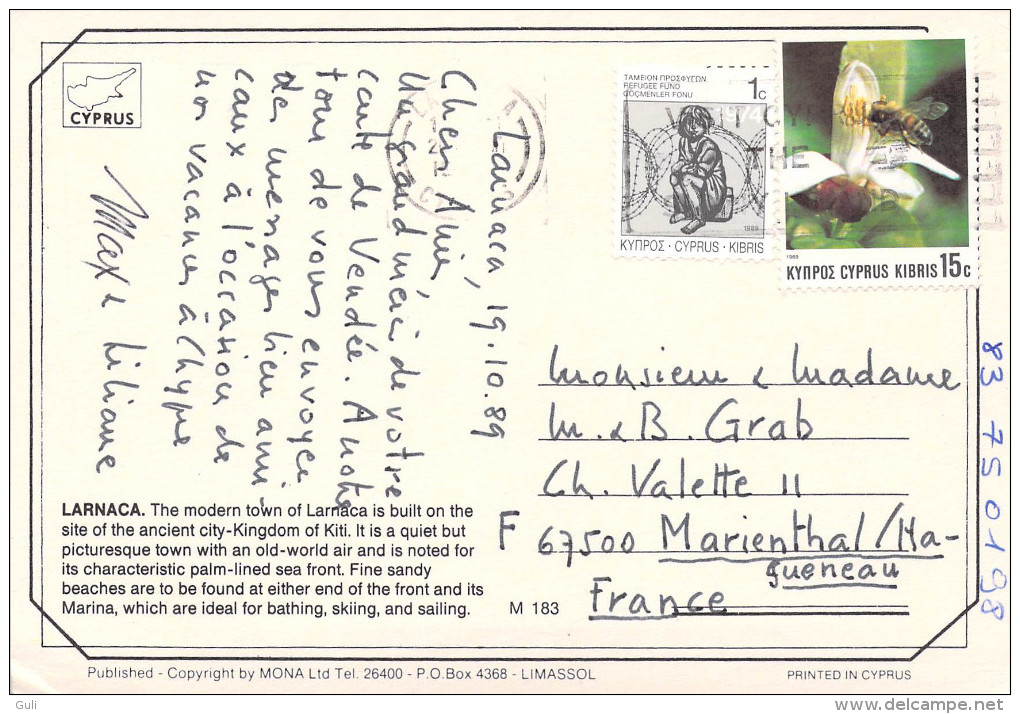 CYPRUS
Larnaca, 19.10.89
Chers Amis,
Un grand merci de votre
carte de Vendée. A notre
tour de vous envoyer
des messages bien ami-
caux à l'occasion de
nos vacances à Chypre
Max & Liliane
LARNACA. The modern town of Larnaca is built on the
site of the ancient city-Kingdom of Kiti. It is a quiet but
picturesque town with an old-world air and is noted for
its characteristic palm-lined sea front. Fine sandy
beaches are to be found at either end of the front and its
Marina, which are ideal for bathing, skiing, and sailing.
M 183
ΤΑΜΕΙΟΝ ΠΡΟΣΦΥΓΩΝ
REFUGEE FUND
GÖÇMENLER FONU
1c
1974
1989
ΚΥΠΡΟΣ · CYPRUS · KIBRIS
1989
ΚΥΠΡΟΣ CYPRUS KIBRIS 15c
Monsieur & Madame
M. & B. Grab
Ch. Valette 11
F 67500 Marienthal/Ha-
gueneau
France
83 750198
Published - Copyright by MONA Ltd Tel. 26400 - P.O.Box 4368 - LIMASSOL
PRINTED IN CYPRUS
Guli
delcampe.net